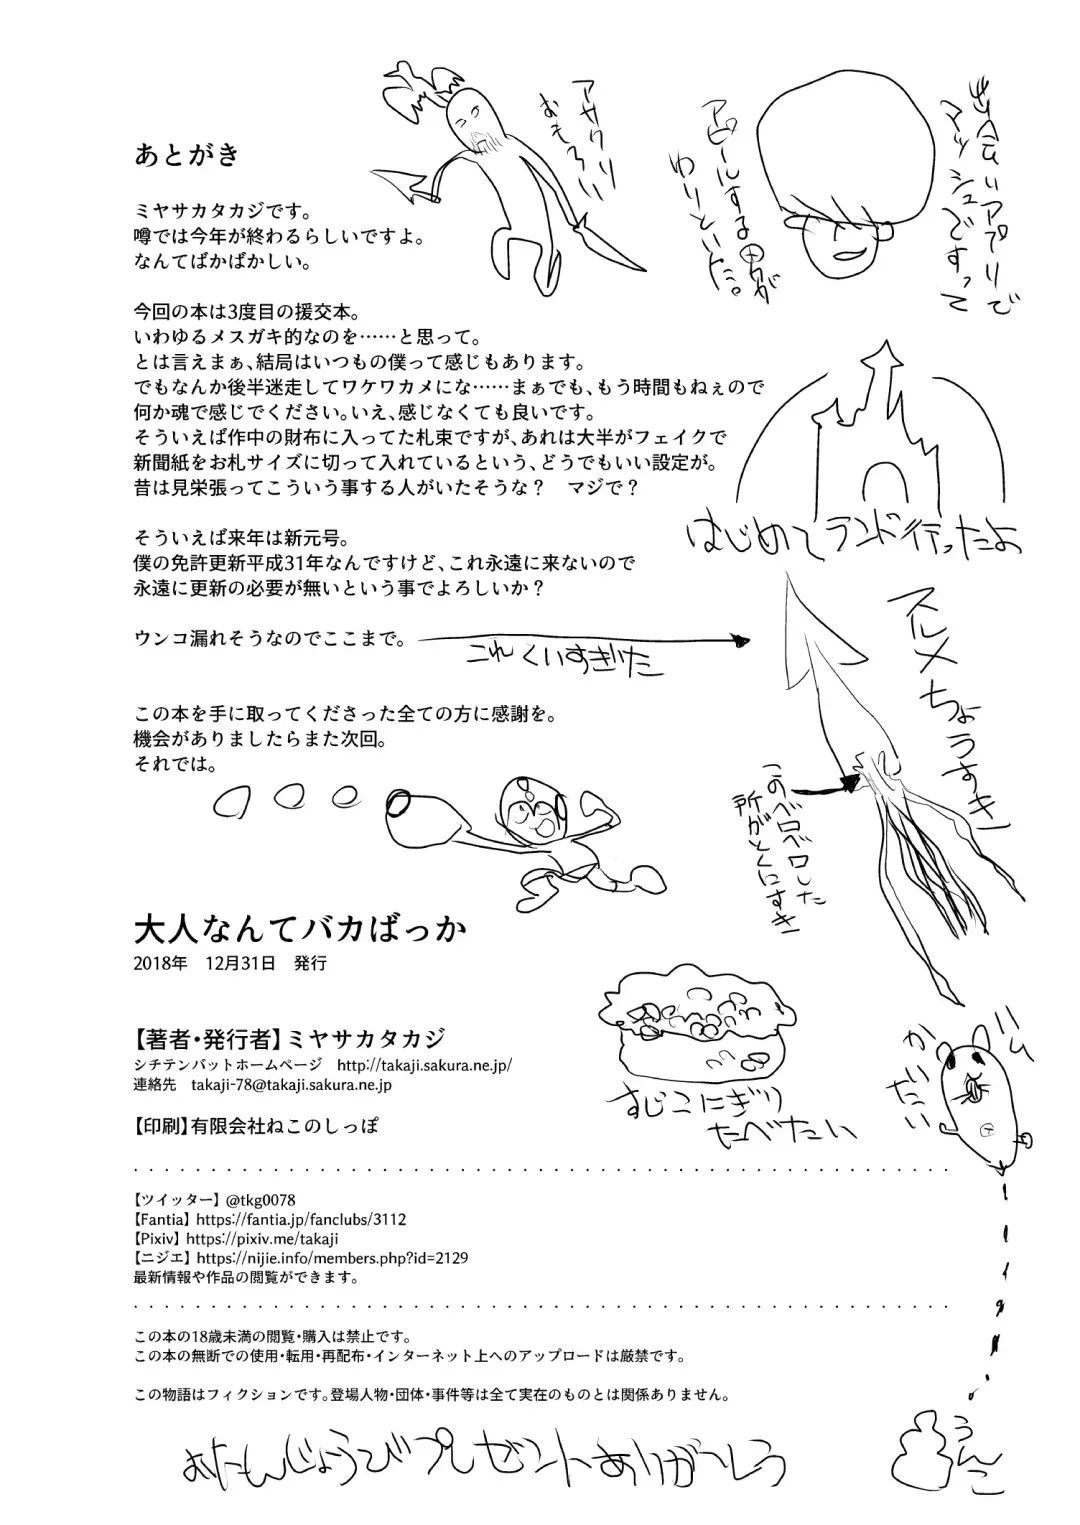 あとがき
ミヤサカタカジです。
噂では今年が終わるらしいですよ。
なんてばかばかしい。
今回の本は3度目の援交本。
いわゆるメスガキ的なのを……と思って。
とは言えまぁ、結局はいつもの僕って感じもあります。
でもなんか後半迷走してワケワカメにな……まぁでも、もう時間もねぇので
何か魂で感じでください。いえ、感じなくても良いです。
そういえば作中の財布に入ってた札束ですが、あれは大半がフェイクで
新聞紙をお札サイズに切って入れているという、どうでもいい設定が。
昔は見栄張ってこういう事する人がいたそうな？　マジで？
そういえば来年は新元号。
僕の免許更新平成31年なんですけど、これ永遠に来ないので
永遠に更新の必要が無いという事でよろしいか？
ウンコ漏れそうなのでここまで。
これ くいすぎた
この本を手に取ってくださった全ての方に感謝を。
機会がありましたらまた次回。
それでは。
アサクリ
おもろい
出会いアプリで
マッシュですって
アピールする男が
ゆりといた。
はじめてランド行ったよ
スルメちょうすき
このベロベロした
所がとくにすき
大人なんてバカばっか
2018年　12月31日　発行
【著者・発行者】ミヤサカタカジ
シチテンバットホームページ　http://takaji.sakura.ne.jp/
連絡先　takaji-78@takaji.sakura.ne.jp
【印刷】有限会社ねこのしっぽ
すじこにぎり
たべたい
ハム
かいたい
【ツイッター】@tkg0078
【Fantia】https://fantia.jp/fanclubs/3112
【Pixiv】https://pixiv.me/takaji
【ニジエ】https://nijie.info/members.php?id=2129
最新情報や作品の閲覧ができます。
この本の18歳未満の閲覧・購入は禁止です。
この本の無断での使用・転用・再配布・インターネット上へのアップロードは厳禁です。
この物語はフィクションです。登場人物・団体・事件等は全て実在のものとは関係ありません。
うんこ
おたんじょうびプレゼントありがとう